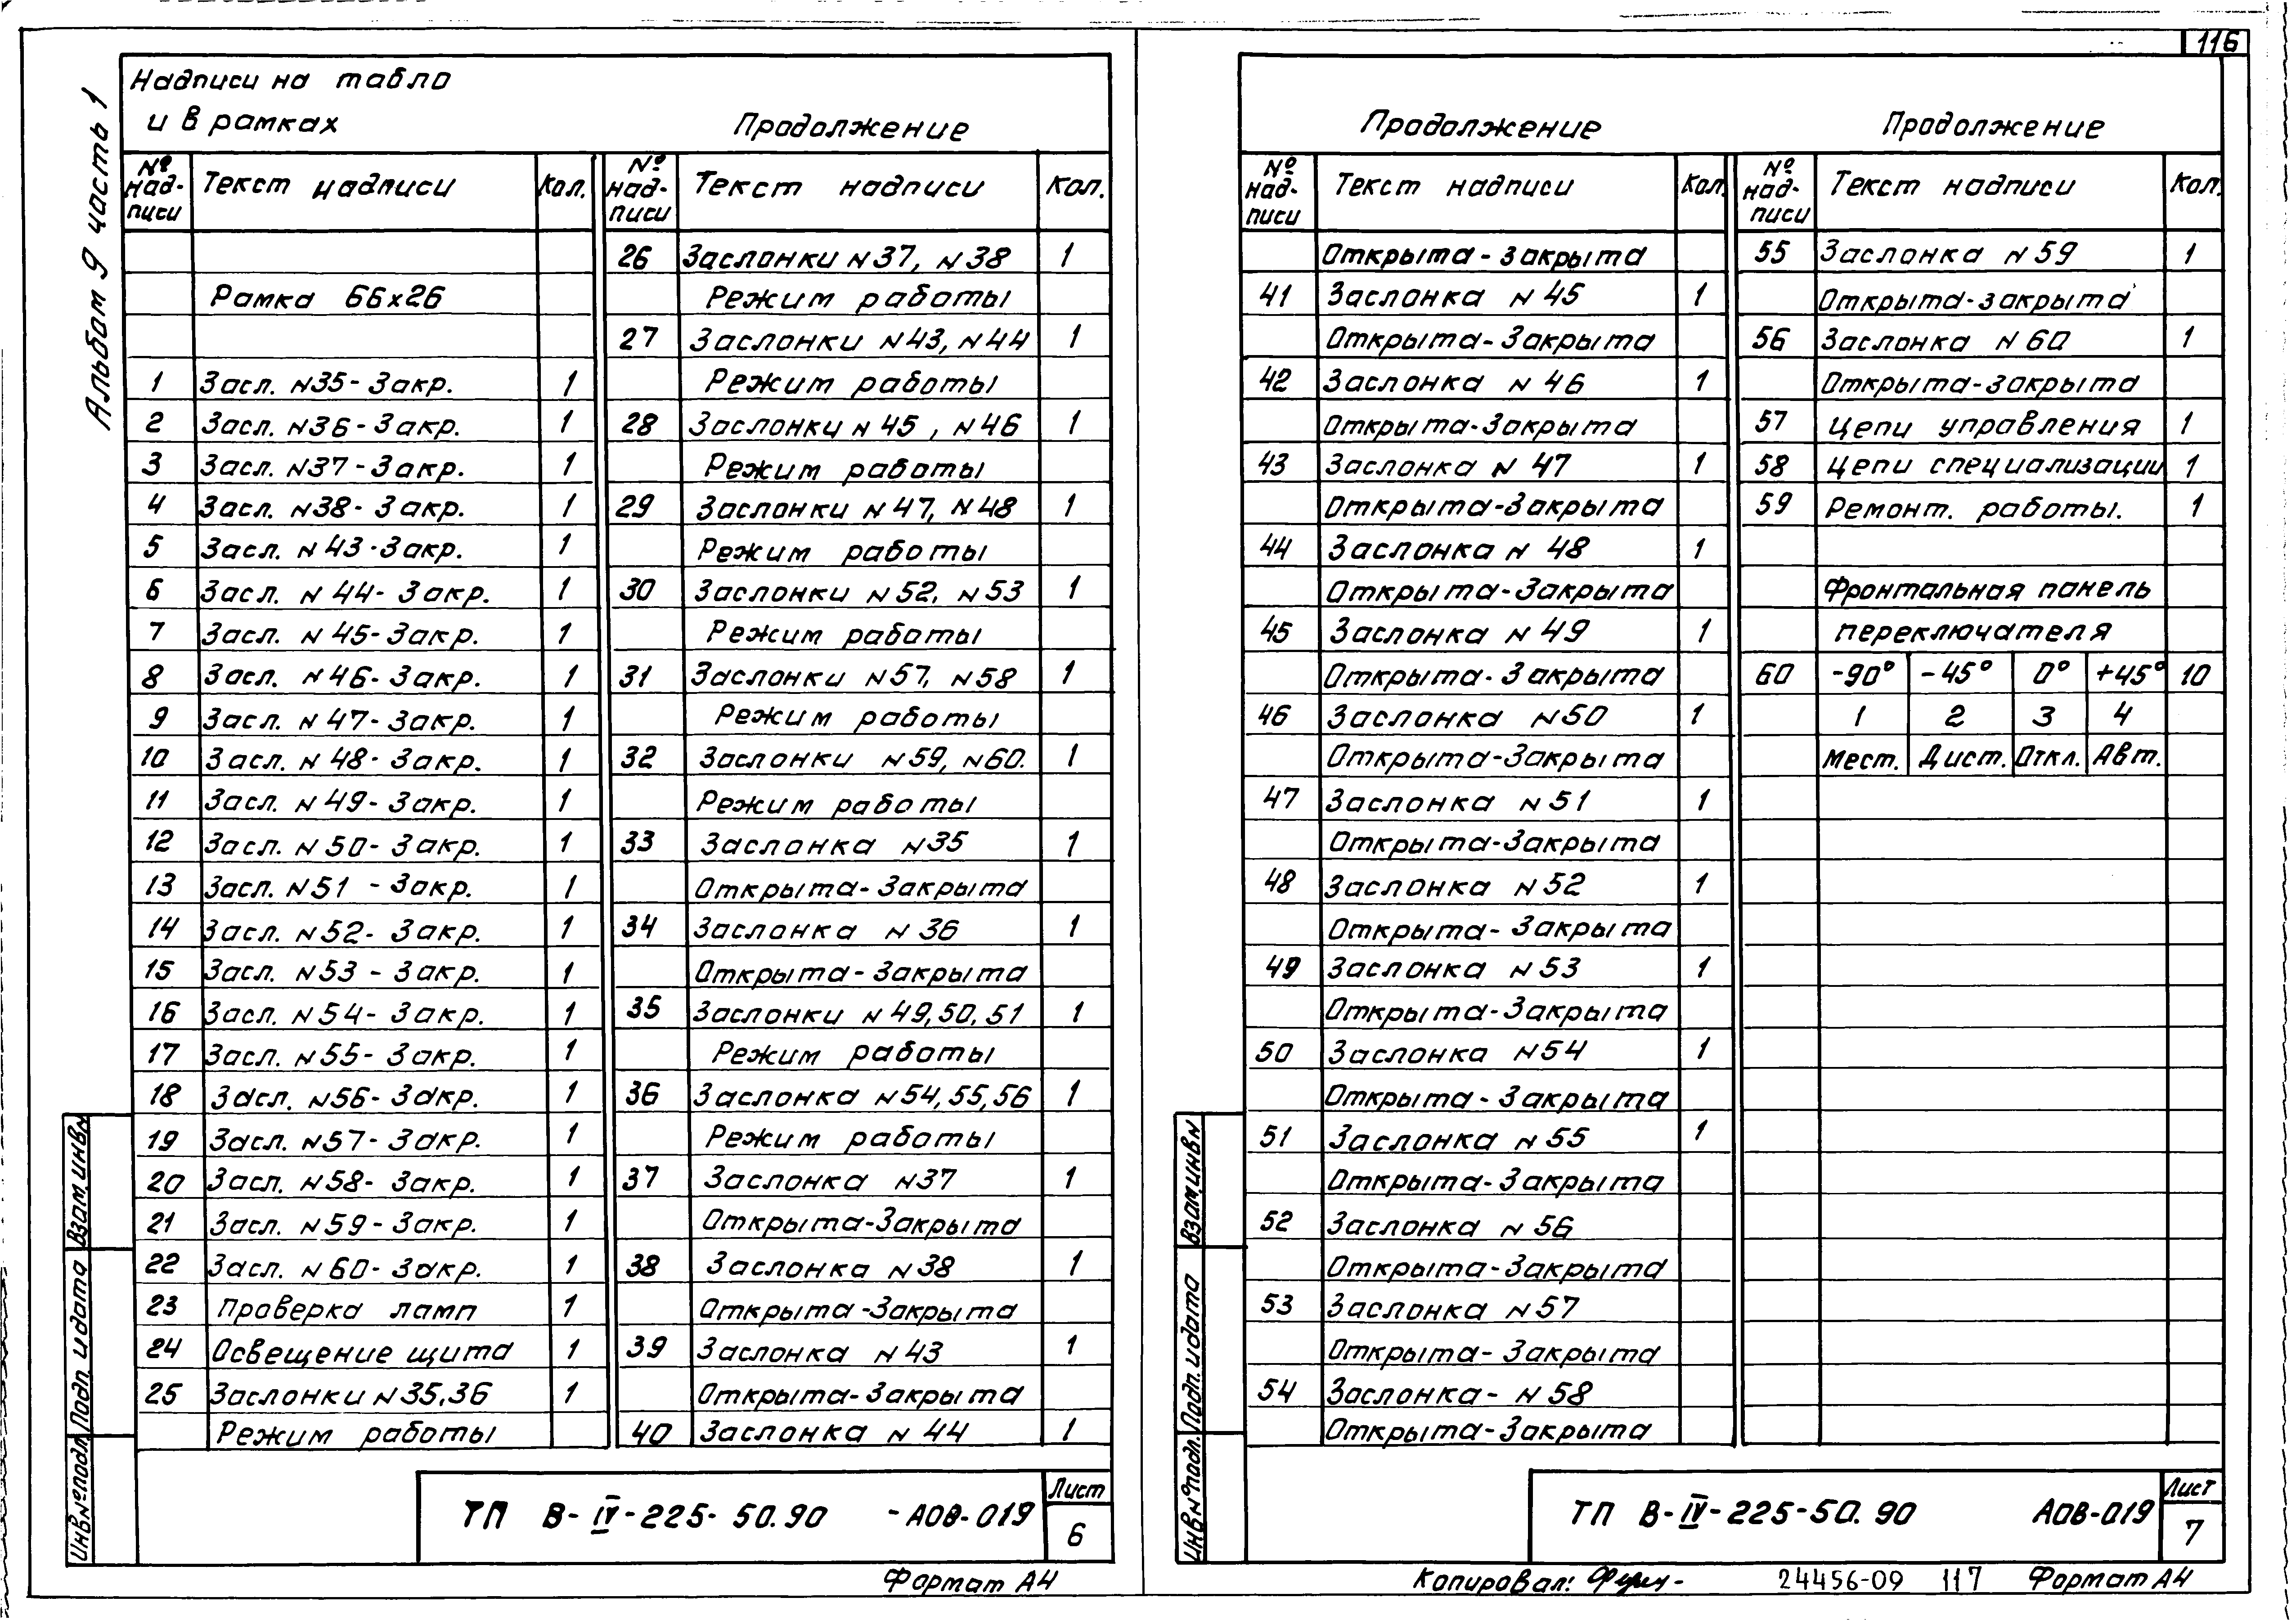 116
Альбом 9 часть 1
Надписи на табло
и в рамках
Продолжение
№ надписи Текст надписи Кол.
Рамка 66х26
1 Засл. N35-Закр. 1
2 Засл. N36-Закр. 1
3 Засл. N37-Закр. 1
4 Засл. N38-Закр. 1
5 Засл. N43-Закр. 1
6 Засл. N44-Закр. 1
7 Засл. N45-Закр. 1
8 Засл. N46-Закр. 1
9 Засл. N47-Закр. 1
10 Засл. N48-Закр. 1
11 Засл. N49-Закр. 1
12 Засл. N50-Закр. 1
13 Засл. N51-Закр. 1
14 Засл. N52-Закр. 1
15 Засл. N53-Закр. 1
16 Засл. N54-Закр. 1
17 Засл. N55-Закр. 1
18 Засл. N56-Закр. 1
19 Засл. N57-Закр. 1
20 Засл. N58-Закр. 1
21 Засл. N59-Закр. 1
22 Засл. N60-Закр. 1
23 Проверка ламп 1
24 Освещение щита 1
25 Заслонки N35,36 1
Режим работы
№ надписи Текст надписи Кол.
26 Заслонки N37, N38 1
Режим работы
27 Заслонки N43, N44 1
Режим работы
28 Заслонки N45, N46 1
Режим работы
29 Заслонки N47, N48 1
Режим работы
30 Заслонки N52, N53 1
Режим работы
31 Заслонки N57, N58 1
Режим работы
32 Заслонки N59, N60. 1
Режим работы
33 Заслонка N35 1
Открыта-Закрыта
34 Заслонка N36 1
Открыта-Закрыта
35 Заслонки N49,50,51 1
Режим работы
36 Заслонка N54,55,56 1
Режим работы
37 Заслонка N37 1
Открыта-Закрыта
38 Заслонка N38 1
Открыта-Закрыта
39 Заслонка N43 1
Открыта-Закрыта
40 Заслонка N44 1
Взам.инв N
Подп. и дата
Инв № подл.
ТП В-IV-225-50.90 -АОВ-019
Лист
6
Формат А4
Продолжение
Продолжение
№ надписи Текст надписи Кол.
Открыта-закрыта
41 Заслонка N45 1
Открыта-Закрыта
42 Заслонка N46 1
Открыта-Закрыта
43 Заслонка N47 1
Открыта-Закрыта
44 Заслонка N48 1
Открыта-Закрыта
45 Заслонка N49 1
Открыта-Закрыта
46 Заслонка N50 1
Открыта-Закрыта
47 Заслонка N51 1
Открыта-Закрыта
48 Заслонка N52 1
Открыта-Закрыта
49 Заслонка N53 1
Открыта-Закрыта
50 Заслонка N54 1
Открыта-Закрыта
51 Заслонка N55 1
Открыта-Закрыта
52 Заслонка N56
Открыта-Закрыта
53 Заслонка N57
Открыта-Закрыта
54 Заслонка-N58
Открыта-Закрыта
№ надписи Текст надписи Кол.
55 Заслонка N59 1
Открыта-закрыта
56 Заслонка N60 1
Открыта-закрыта
57 Цепи управления 1
58 Цепи специализации 1
59 Ремонт. работы. 1
Фронтальная панель
переключателя
60 -90° -45° 0° +45° 10
1 2 3 4
Мест. Дист. Откл. Авт.
Взам.инв N
Подп. и дата
Инв № подл.
ТП В-IV-225-50.90 АОВ-019
Лист
7
Копировал: 24456-09 117 Формат А4